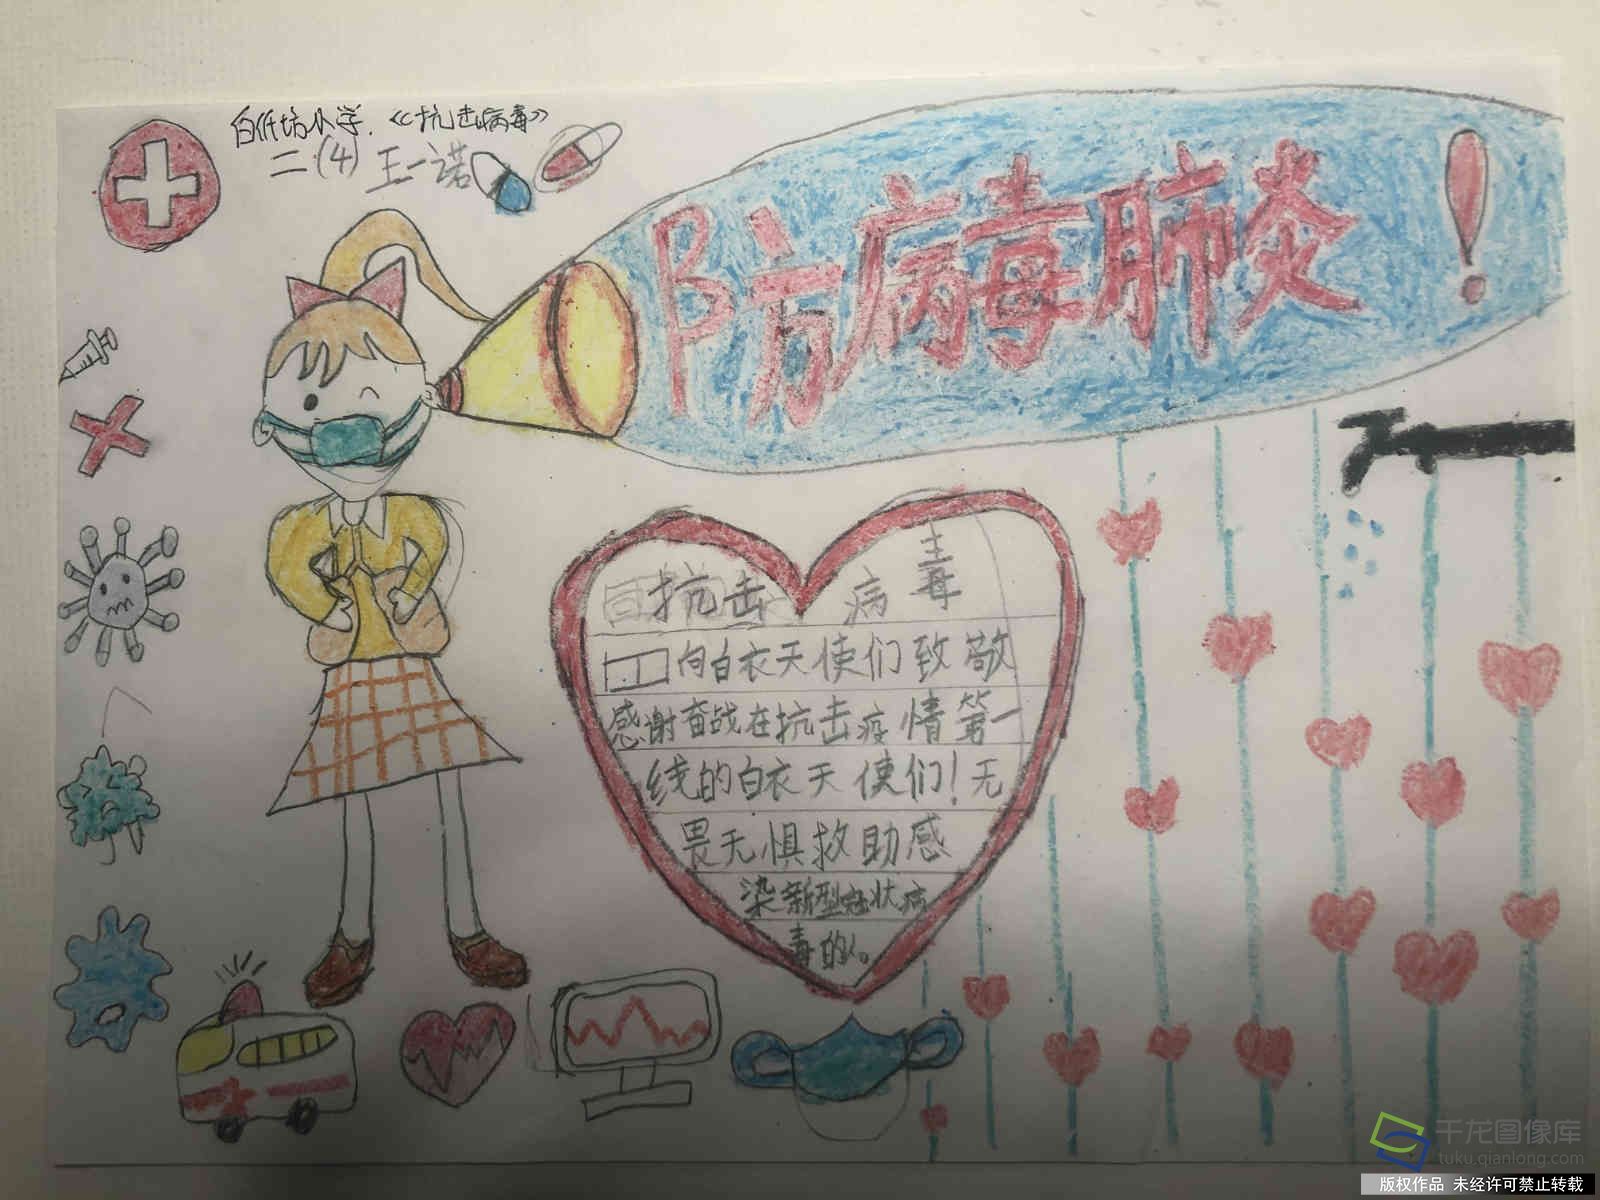 白纸坊小学.《抗击病毒》
二(4) 王一诺
防病毒肺炎!
抗击病毒
向白衣天使们致敬
感谢奋战在抗击疫情第一
线的白衣天使们!无
畏无惧救助感
染新型冠状病
毒的人。
千龙图像库
tuku.qianlong.com
版权作品 未经许可禁止转载